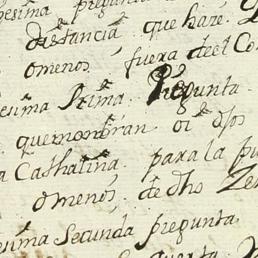 esima pregunta
distancia que haze
omenos, fuera deel Co
esima Prima Pregunta
quenombran oi dos
a Cathalina para la pu
omenos, de dho Ze
esima Secunda pregunta